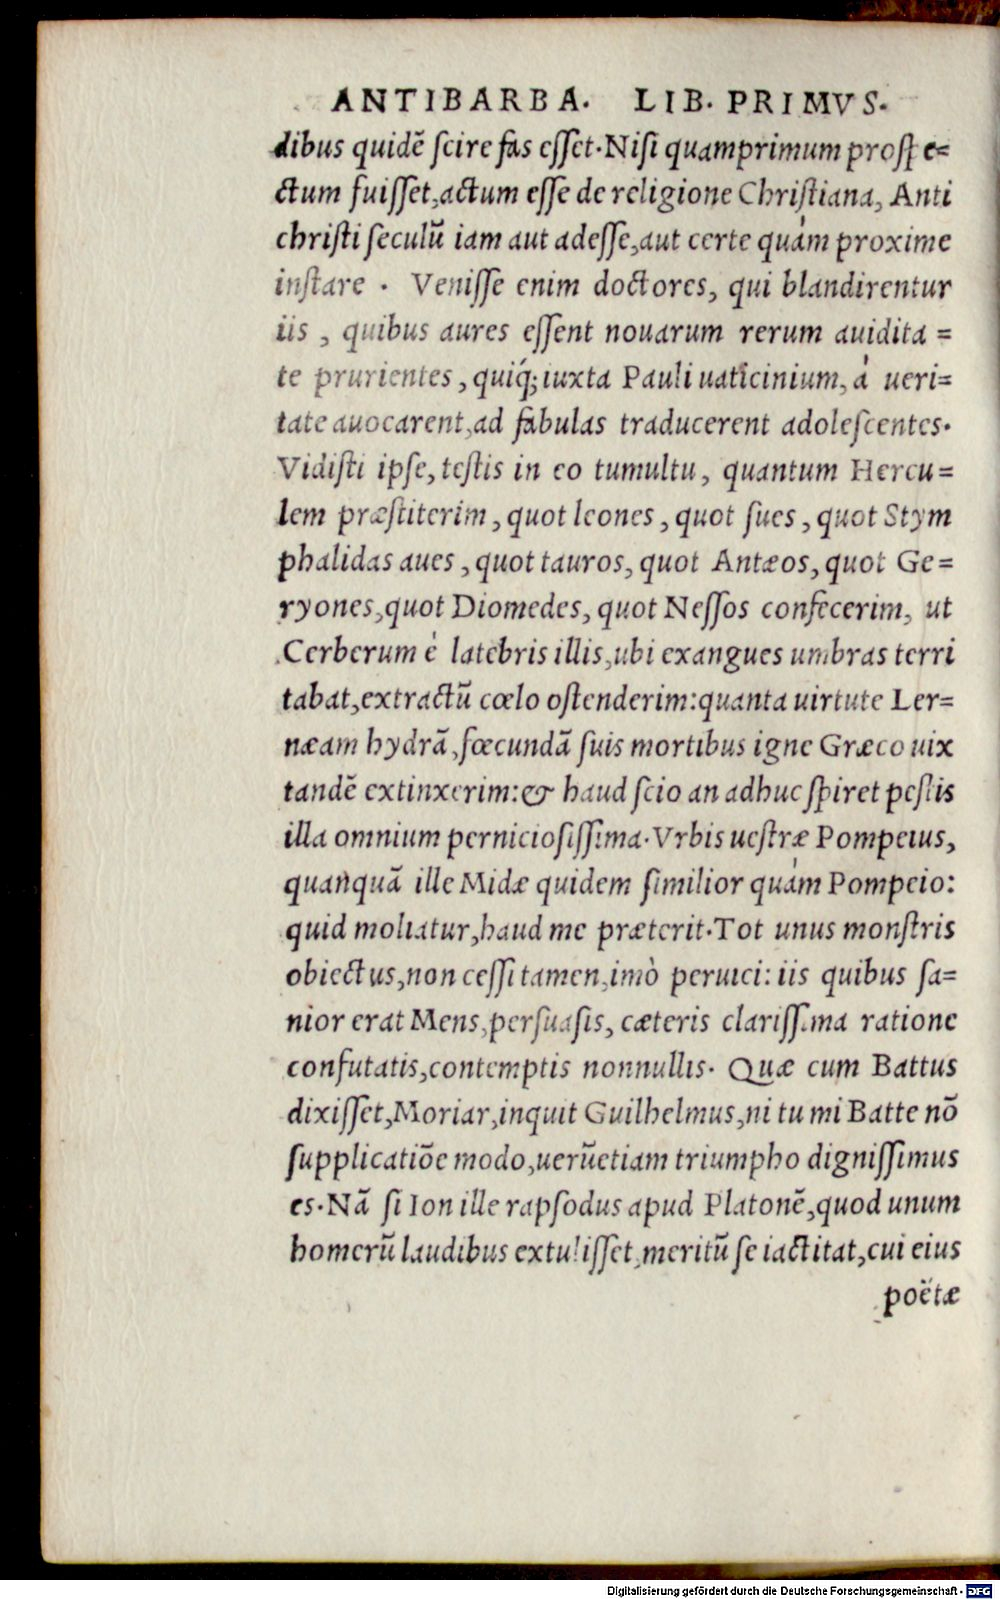 ANTIBARBA. LIB. PRIMVS.
dibus quidē ſcire fas eſſet. Niſi quamprimum proſpe=
ctum fuiſſet, actum eſſe de religione Chriſtiana, Anti
chriſti ſeculū iam aut adeſſe, aut certe quàm proxime
inſtare . Veniſſe enim doctores, qui blandirentur
iis , quibus aures eſſent nouarum rerum auidita =
te prurientes , quiq́; iuxta Pauli uaticinium, à ueri=
tate auocarent, ad fabulas traducerent adoleſcentes.
Vidiſti ipſe, teſtis in eo tumultu , quantum Hercu=
lem præſtiterim , quot leones , quot ſues , quot Stym
phalidas aues , quot tauros, quot Antæos, quot Ge=
ryones, quot Diomedes, quot Neſſos confecerim, ut
Cerberum è latebris illis, ubi exangues umbras terri
tabat, extractū cœlo oſtenderim: quanta uirtute Ler=
næam hydrā, fœcundā ſuis mortibus igne Græco uix
tandē extinxerim: & haud ſcio an adhuc ſpiret peſtis
illa omnium pernicioſiſſima. Vrbis ueſtræ Pompeius,
quanquā ille Midæ quidem ſimilior quàm Pompeio:
quid moliatur, haud me præterit. Tot unus monſtris
obiectus, non ceſſi tamen, imò peruici: iis quibus ſa=
nior erat Mens, perſuaſis, cæteris clariſſima ratione
confutatis, contemptis nonnullis. Quæ cum Battus
dixiſſet, Moriar, inquit Guilhelmus, ni tu mi Batte nō
ſupplicatiōe modo, uerūetiam triumpho digniſſimus
es. Nā ſi Ion ille rapſodus apud Platonē, quod unum
homerū laudibus extuliſſet, meritū ſe iactitat, cui eius
poëtæ
Digitalisierung gefördert durch die Deutsche Forschungsgemeinschaft - DFG